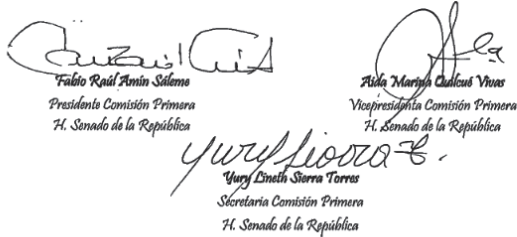 Fabio Raúl Amín Sáleme
Presidente Comisión Primera
H. Senado de la República
Aida Marina Quilcué Vivas
Vicepresidenta Comisión Primera
H. Senado de la República
Yury Sierra T.
Yury Lineth Sierra Torres
Secretaria Comisión Primera
H. Senado de la República